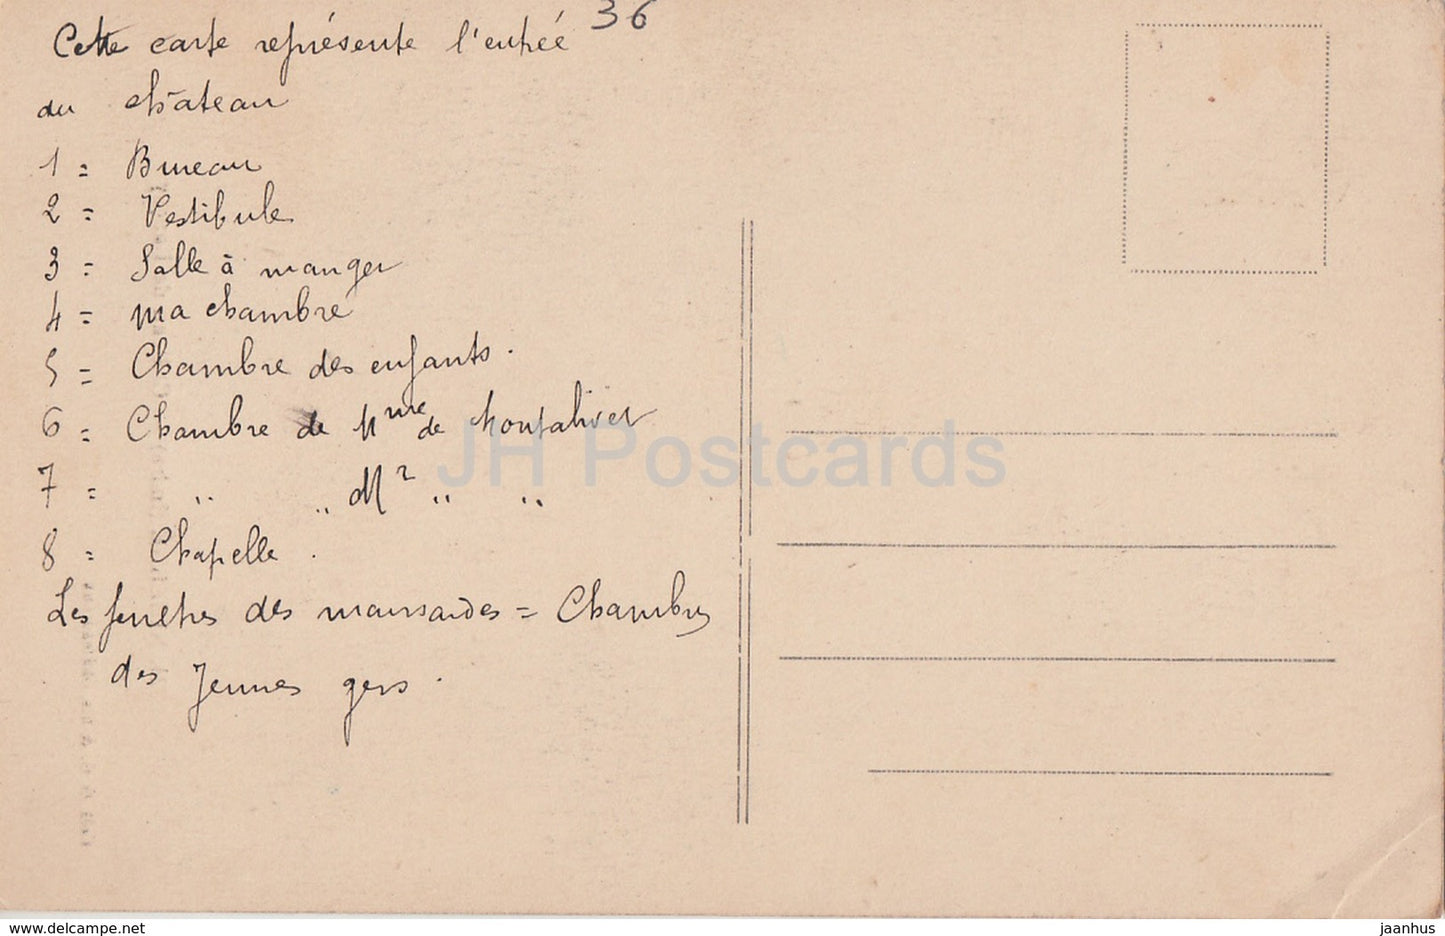 36
Cette carte représente l'entrée
du château
1 = Bureau
2 = Vestibule
3 = Salle à manger
4 = ma chambre
5 = Chambre des enfants.
6 = Chambre de Mme de Montalivet
7 = " " Mr " "
8 = Chapelle.
Les fenêtres des mansardes = Chambres
des Jeunes gens.
JH Postcards
www.delcampe.net
jaanhus